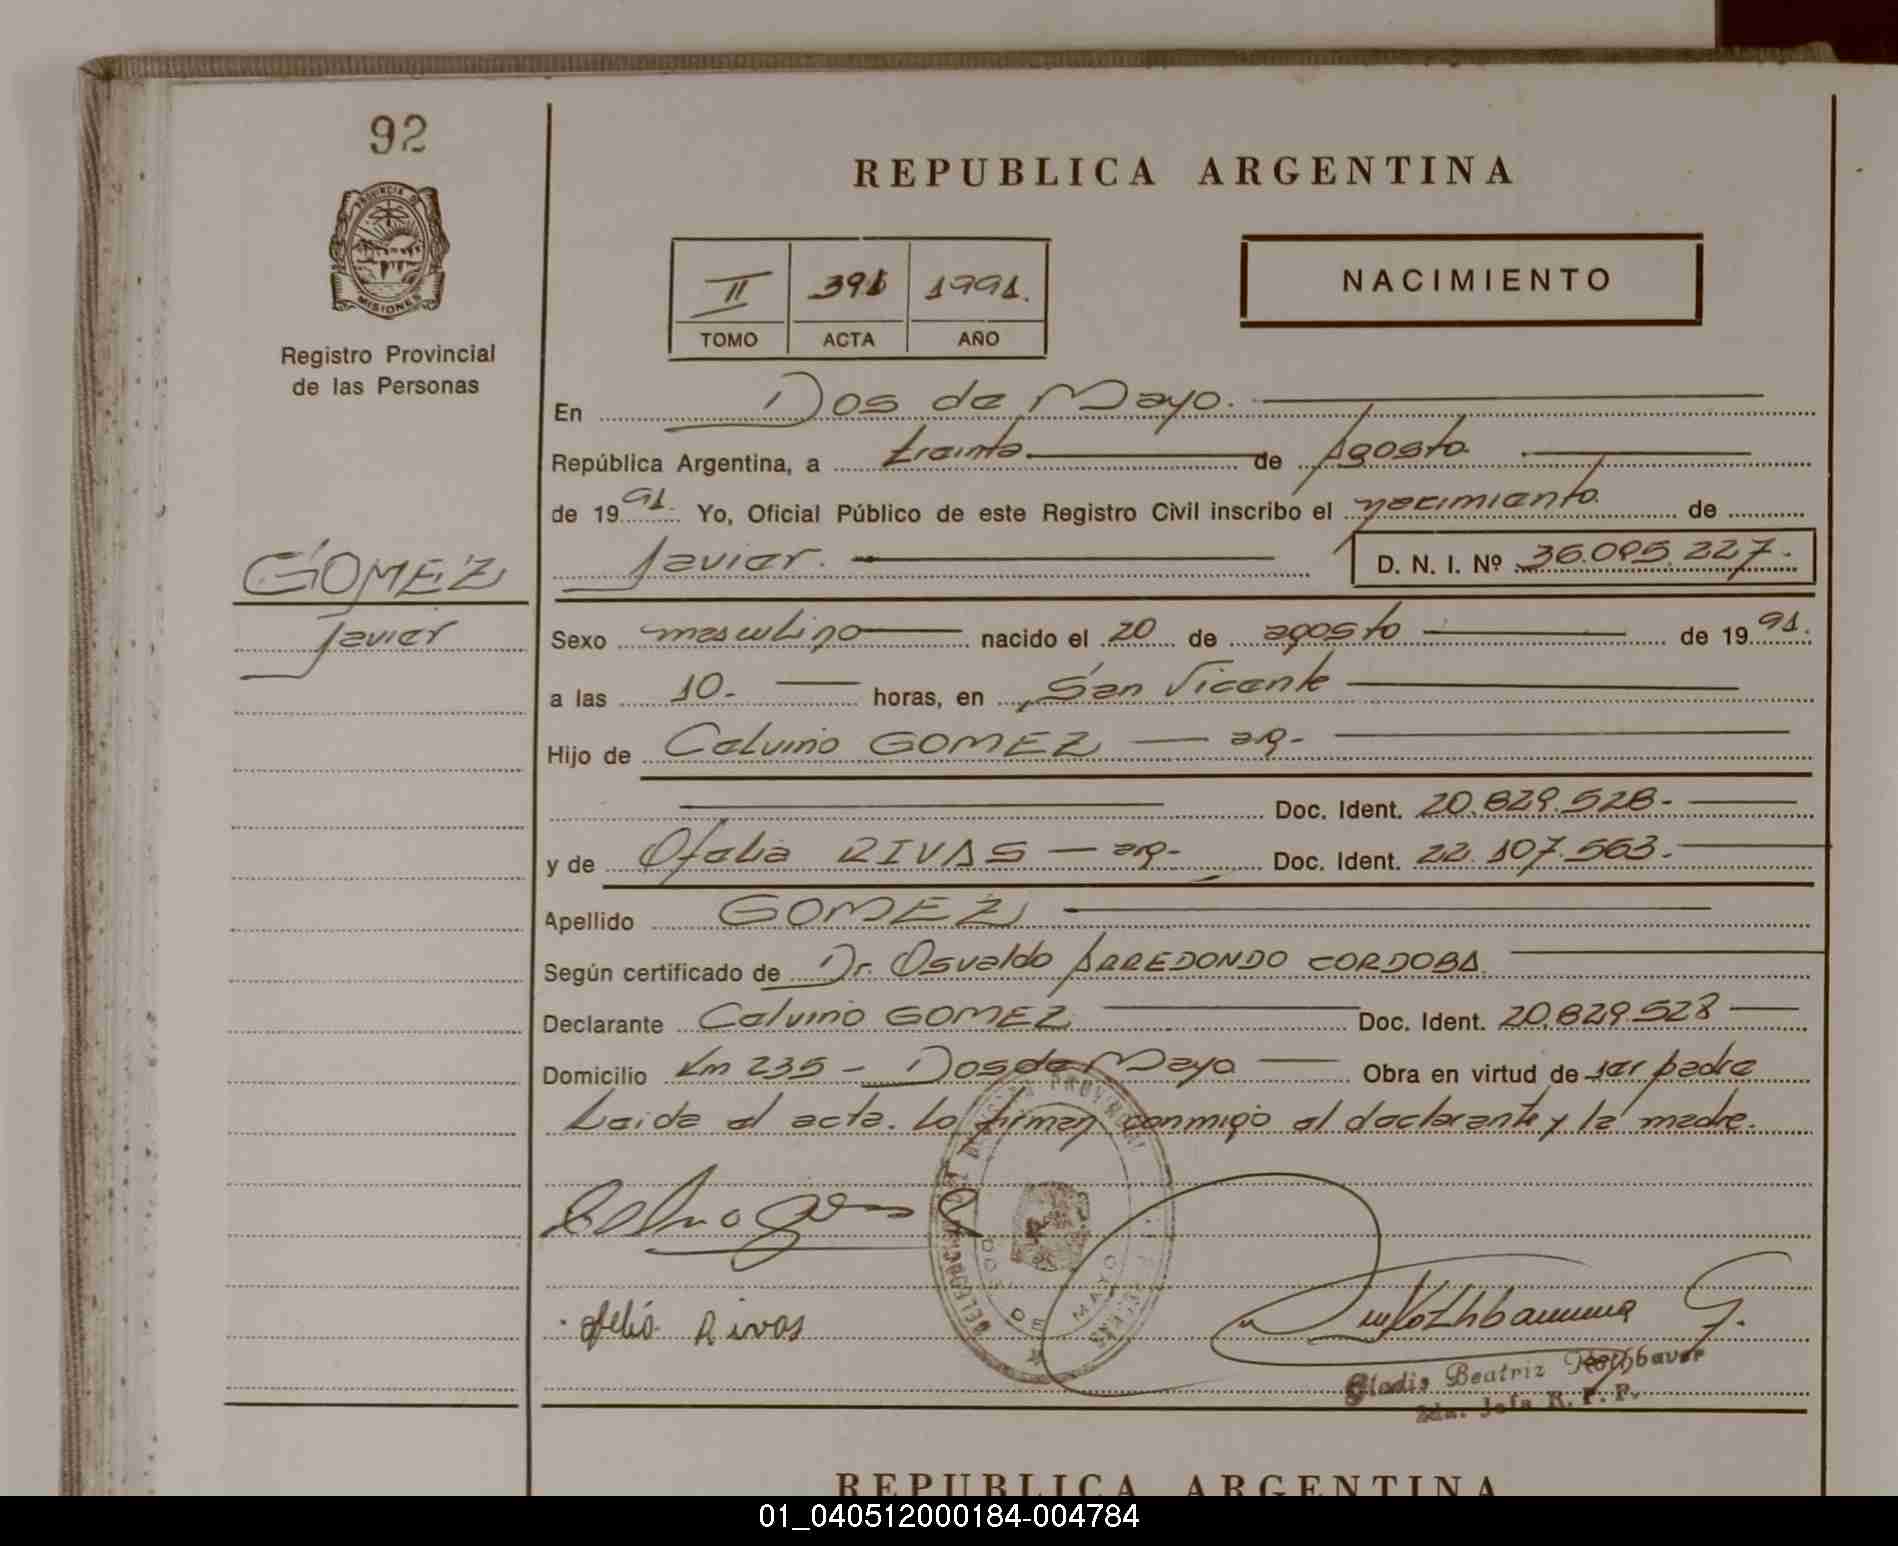 92
PROVINCIA DE
MISIONES
Registro Provincial
de las Personas
GOMEZ
Javier
REPUBLICA ARGENTINA
II 391 1991.
TOMO ACTA AÑO
NACIMIENTO
En Dos de Mayo.
República Argentina, a treinta de Agosto
de 1991. Yo, Oficial Público de este Registro Civil inscribo el nacimiento de
Javier. D. N. I. Nº 36.095.227.
Sexo masculino nacido el 20 de agosto de 1991.
a las 10. horas, en San Vicente
Hijo de Calvino GOMEZ — arg.
Doc. Ident. 20.829.528.
y de Ofelia RIVAS — arg. Doc. Ident. 22.107.563.
Apellido GOMEZ
Según certificado de Dr. Osvaldo ARREDONDO CORDOBA.
Declarante Calvino GOMEZ Doc. Ident. 20.829.528
Domicilio Km 235 - Dos de Mayo Obra en virtud de ser padre
Leida el acta. Lo firman conmigo el declarante y la madre.
DOS DE MAYO
ofelia Rivas
Gladis Beatriz Rothbauer
2da. Jefa R. P. P.
REPUBLICA ARGENTINA
01_040512000184-004784